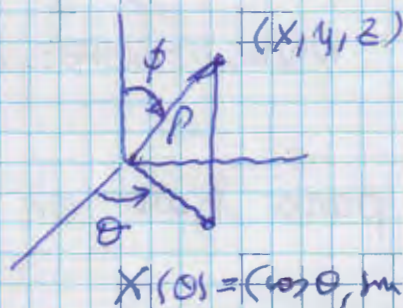 (x, y, z)
φ
ρ
θ
X(θ) = (cos θ, sin